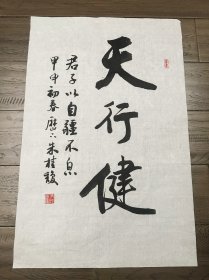 天行健
君子以自强不息
甲申初春 历下 朱桂馥